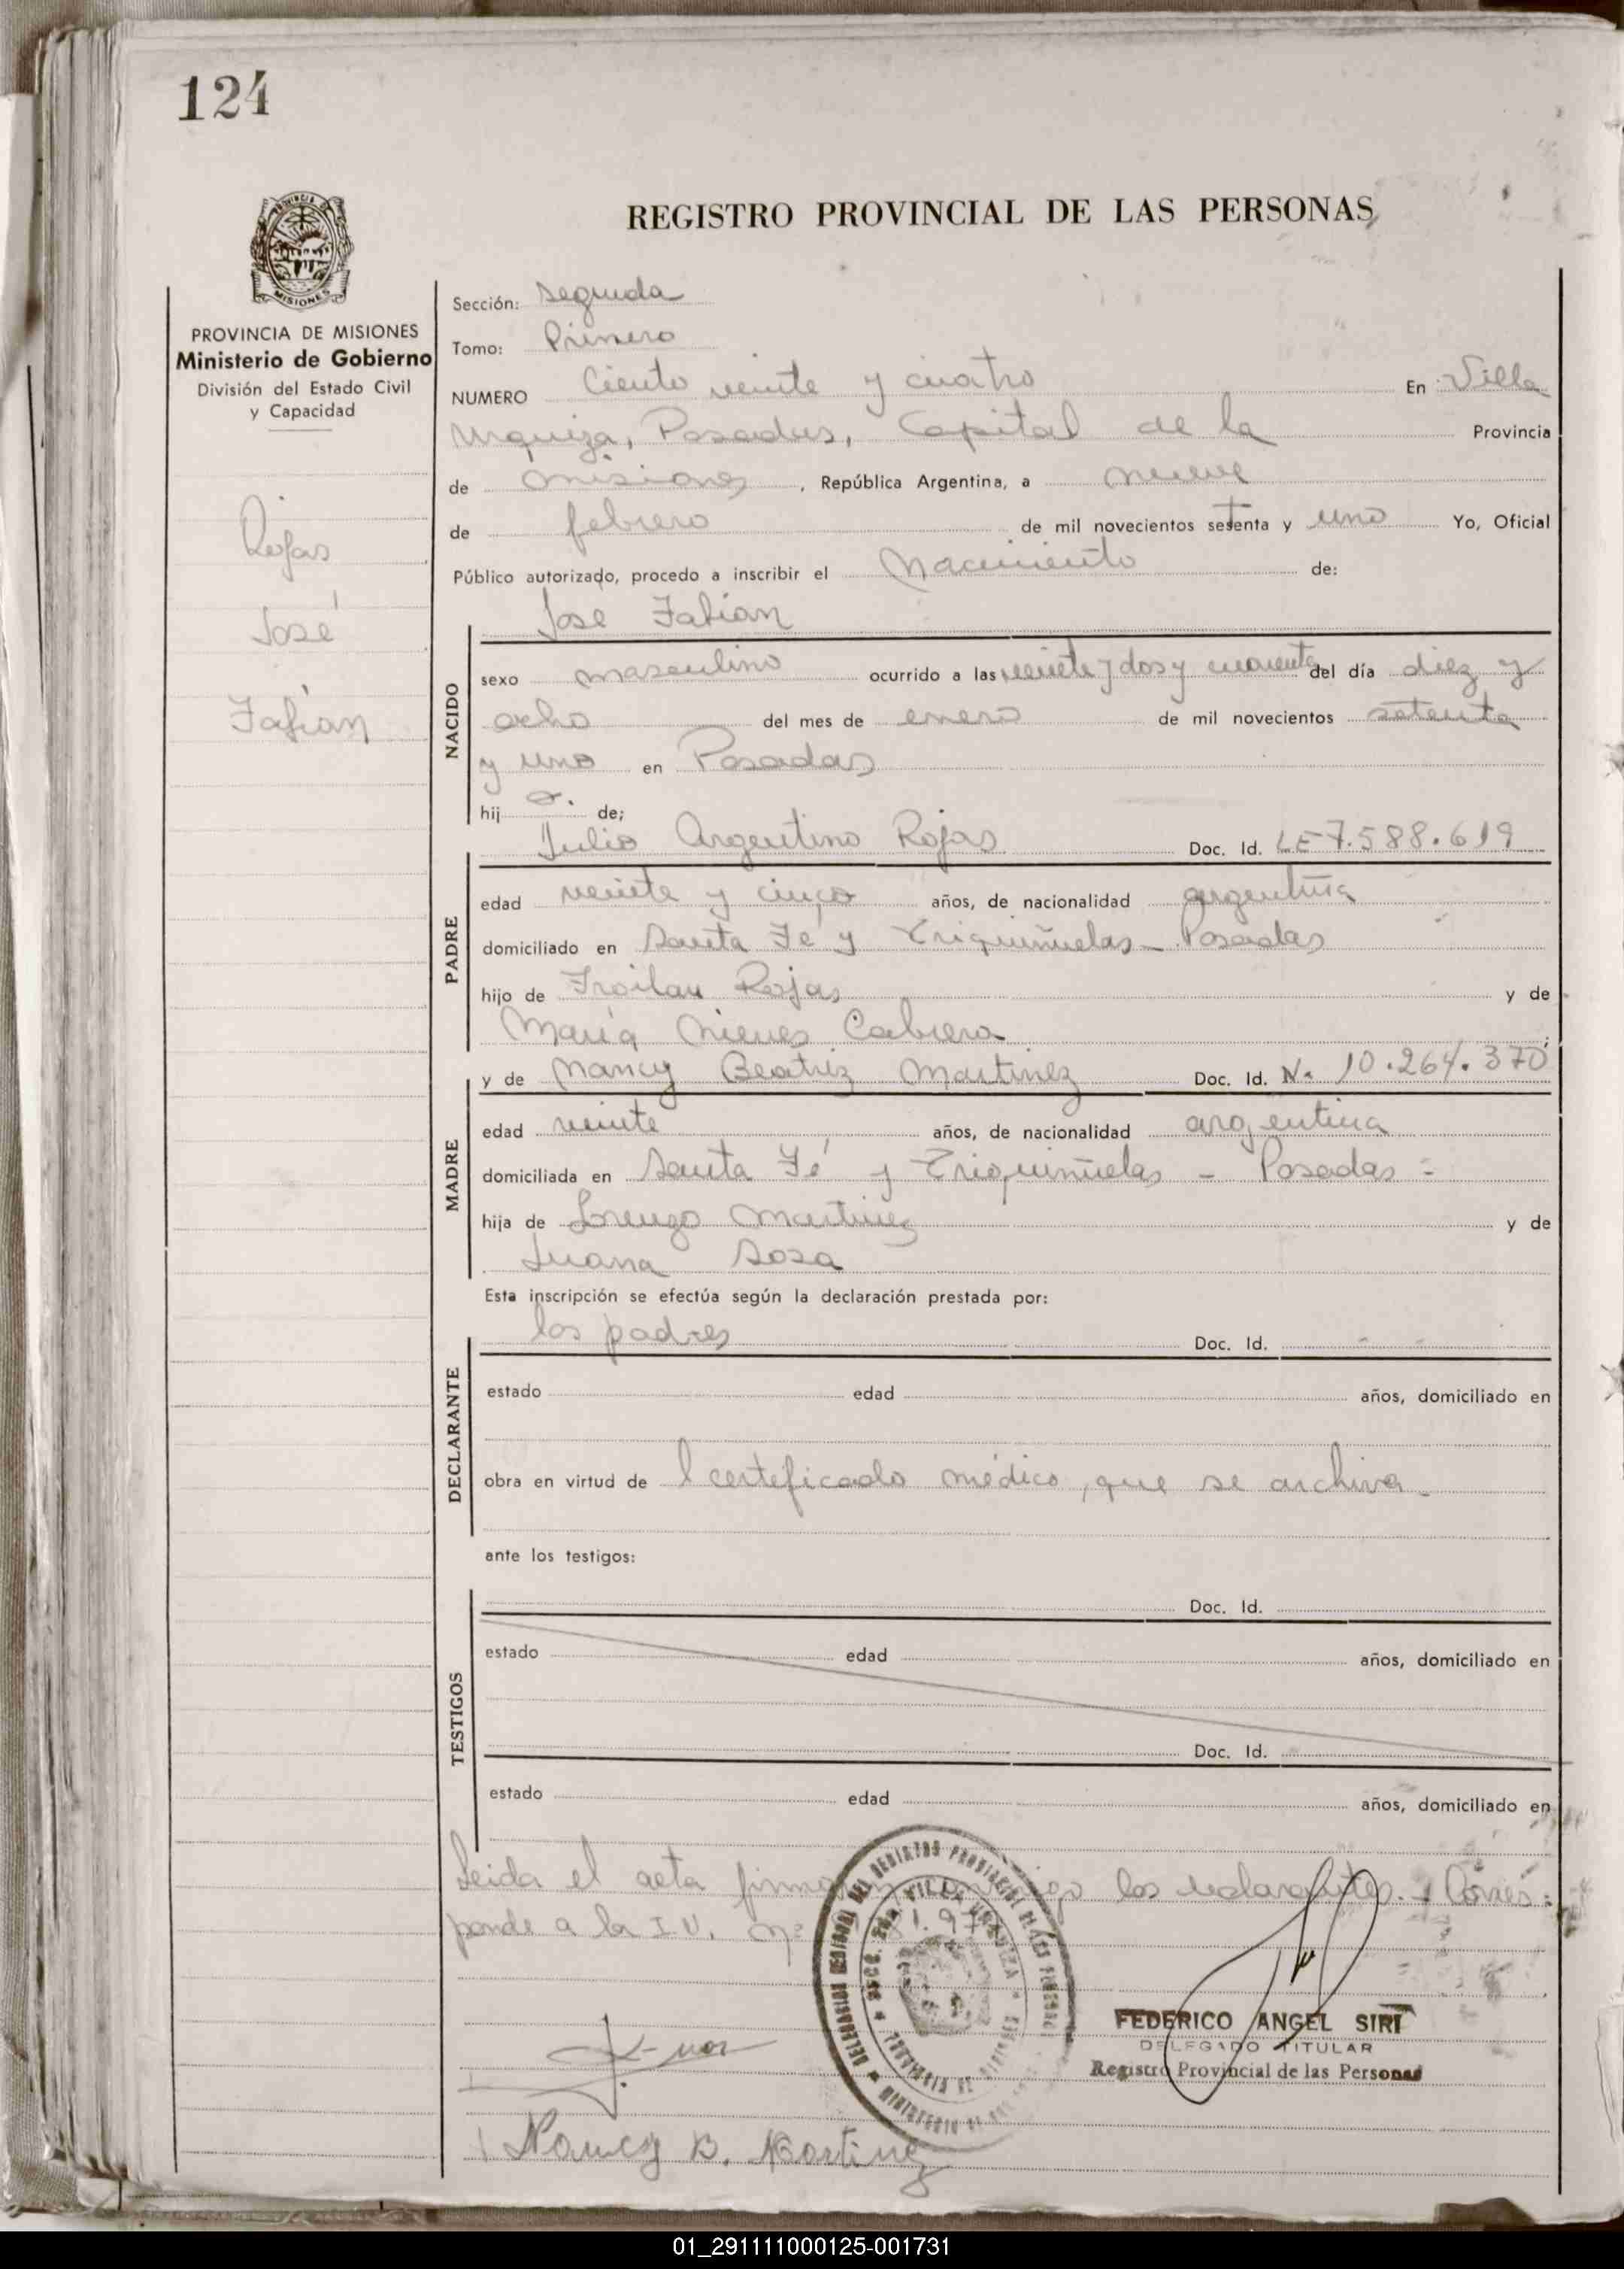 124
REGISTRO PROVINCIAL DE LAS PERSONAS
MISIONES
PROVINCIA DE MISIONES
Ministerio de Gobierno
División del Estado Civil
y Capacidad
Rojas
José
Fabian
Sección: Segunda
Tomo: Primero
NUMERO Ciento veinte y cuatro En Villa
Urquiza, Posadas, Capital de la Provincia
de Misiones, República Argentina, a nueve
de febrero de mil novecientos setenta y uno Yo, Oficial
Público autorizado, procedo a inscribir el Nacimiento de:
José Fabian
NACIDO
sexo masculino ocurrido a las veinte y dos y cuarenta del día diez y
ocho del mes de enero de mil novecientos setenta
y uno en Posadas
hij o. de;
Julio Argentino Rojas Doc. Id. LE 7.588.619
PADRE
edad veinte y cinco años, de nacionalidad argentina
domiciliado en Santa Fé y Triquiñuelas - Posadas
hijo de Froilan Rojas y de
María Nieves Cabrera
y de Nancy Beatriz Martinez Doc. Id. Nº 10.264.370
MADRE
edad veinte años, de nacionalidad argentina
domiciliada en Santa Fé y Triquiñuelas - Posadas =
hija de Lorenzo Martinez y de
Juana Sosa
Esta inscripción se efectúa según la declaración prestada por:
los padres Doc. Id. - -
DECLARANTE
estado edad años, domiciliado en
obra en virtud de l certeficado médico, que se archiva.
ante los testigos:
Doc. Id.
TESTIGOS
estado edad años, domiciliado en
Doc. Id.
estado edad años, domiciliado en
Leida el acta los declarantes. Corres=
ponde a la I.U. Nº
FEDERICO ANGEL SIRI
DELEGADO TITULAR
Registro Provincial de las Personas
Nancy B. Martinez
01_291111000125-001731